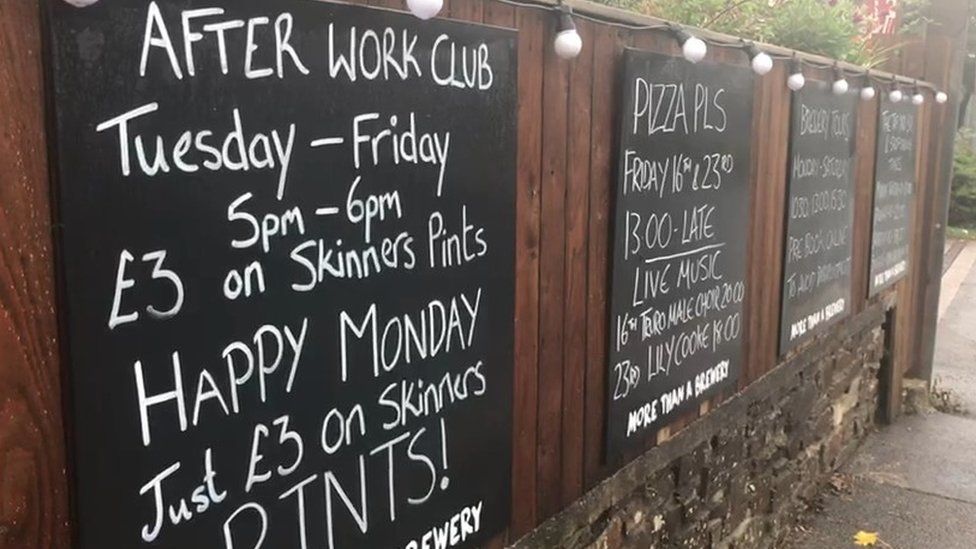 AFTER WORK CLUB
Tuesday – Friday
5pm – 6pm
£3 on Skinners Pints
HAPPY MONDAY
Just £3 on Skinners
PINTS!
BREWERY
PIZZA PLS
FRIDAY 16TH & 23RD
13:00 - LATE
LIVE MUSIC
16TH TRURO MALE CHOIR 20:00
23RD LILY COOKE 18:00
MORE THAN A BREWERY
BREWERY TOURS
MONDAY - SATURDAY
PRE BOOK ONLINE
TO AVOID
MORE THAN A BREWERY